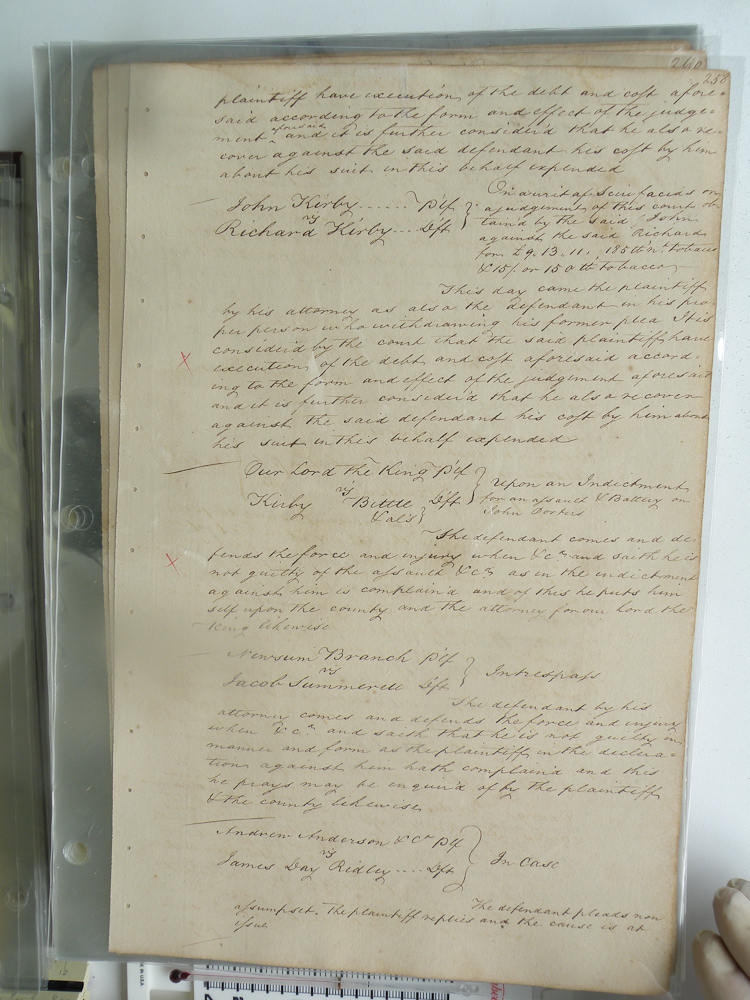 240
258
plaintiff have execution of the debt and cost afore-
said according to the form and effect of the judge-
ment aforesaid and it is further consider'd that he also re-
cover against the said defendant his cost by him
about his suit in this behalf expended
John Kirby...... Plf
vs
Richard Kirby.... Dft
On a writ of Scire facias on
a judgement of this court ob-
tain'd by the said John
against the said Richard
for £9.13.11, 185 tt nt. tobacco
& 15/ or 150 tt tobacco
This day came the plaintiff
by his attorney as also the defendant in his pro-
per person who withdrawing his former plea It is
consider'd by the court that the said plaintiff have
execution of the debt and cost aforesaid accord-
ing to the form and effect of the judgement aforesaid
and it is further consider'd that he also recover
against the said defendant his cost by him about
his suit in this behalf expended
Our Lord the King Plf
vs
Kirby Bittle Dft
& als
Upon an Indictment
for an assault & Battery on
John Porters
The defendant comes and de-
fends the force and injury when &c. and saith he is
not guilty of the assault &c. as in the indictment
against him is complain'd and of this he puts him
self upon the county and the attorney for our Lord the
King likewise
Newsum Branch Plf
vs
Jacob Summerell Dft
In trespass
The defendant by his
attorney comes and defends the force and injury
when &c. and saith that he is not guilty in
manner and form as the plaintiff in the declara-
tion against him hath complain'd and this
he prays may be inquir'd of by the plaintiff
& the county likewise
Andrew Anderson & Co Plf
vs
James Day Ridley.... Dft
In Case
The defendant pleads non
assumpset. The plaintiff replies and the cause is at
issue.